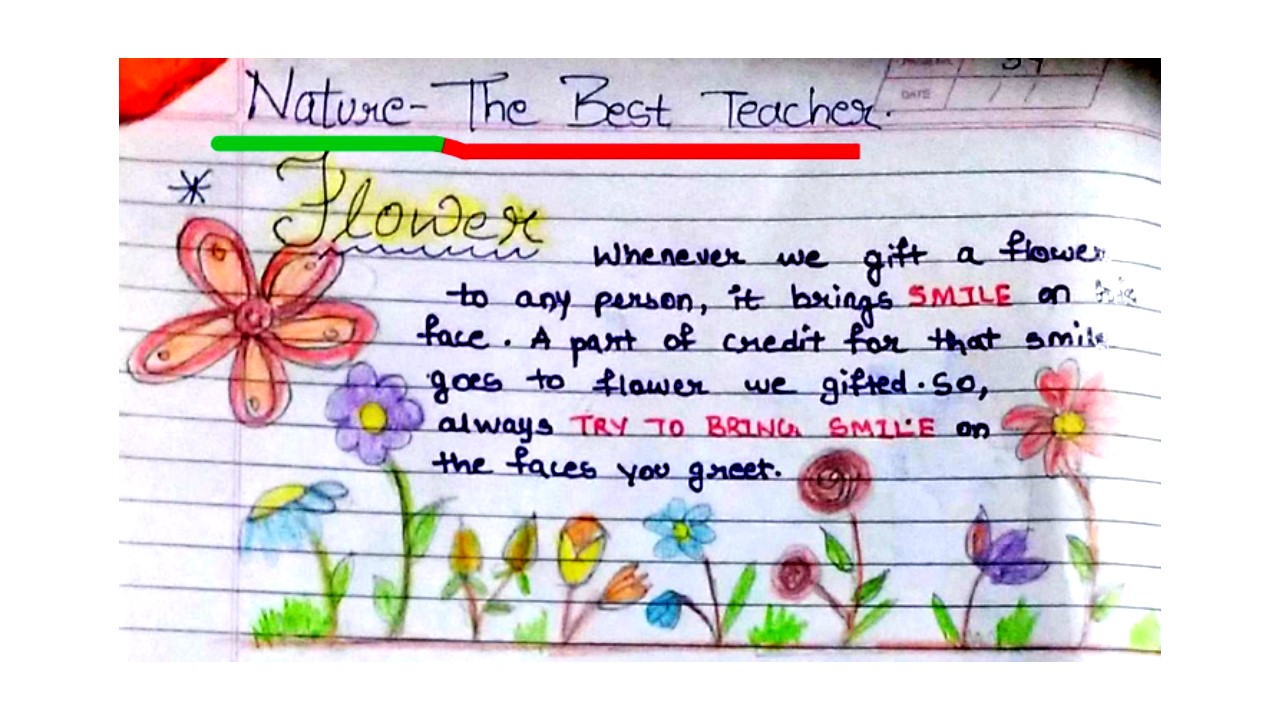 Nature- The Best Teacher.
DATE
* Flower
Whenever we gift a flower
to any person, it brings SMILE on
face. A part of credit for that smile
goes to flower we gifted. So,
always TRY TO BRING SMILE on
the faces you greet.